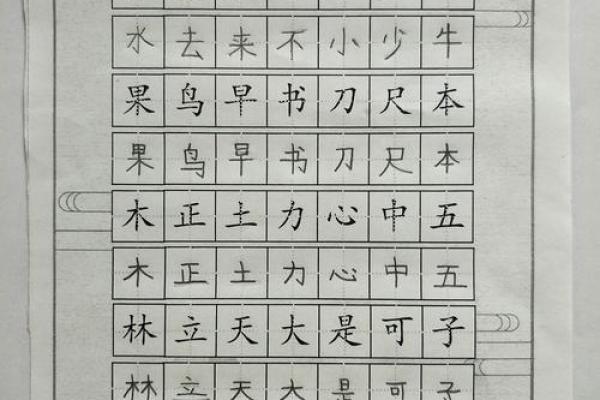 水去来不小少牛
果鸟早书刀尺本
果鸟早书刀尺本
木正土力心中五
木正土力心中五
林立天大是可子
林立天大是可子